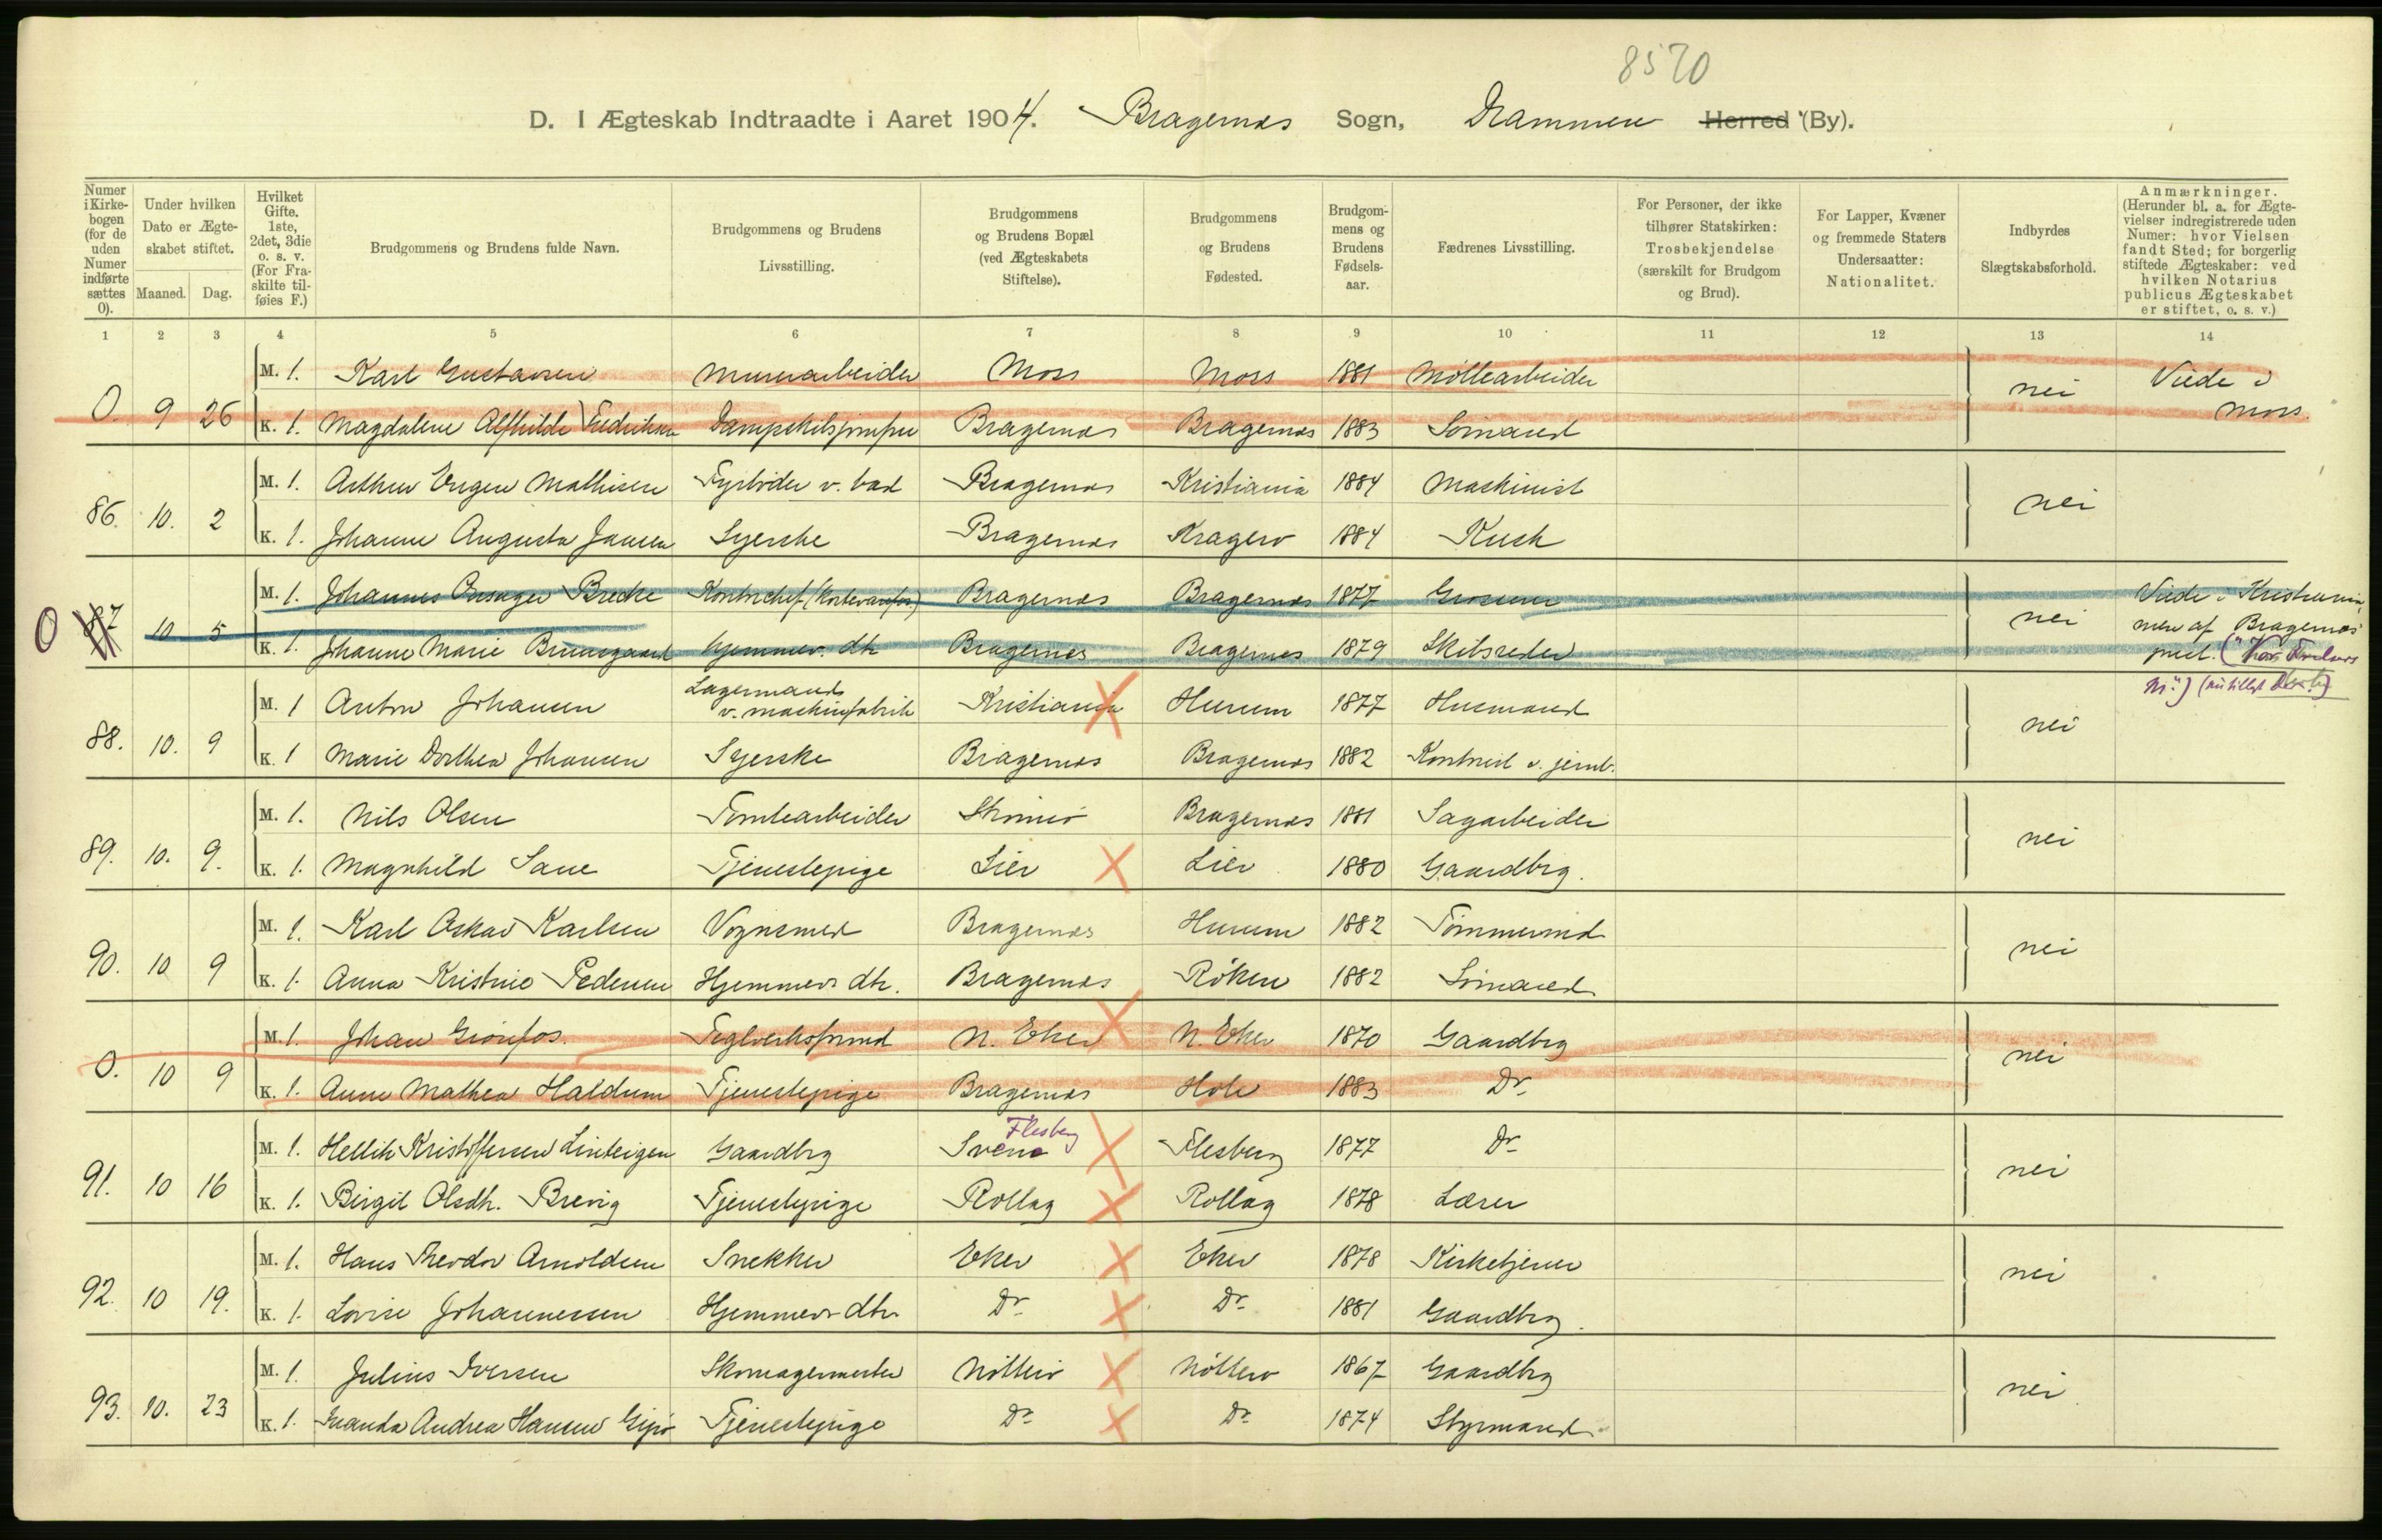 8570
D. I Ægteskab Indtraadte i Aaret 1904. Bragernes Sogn, Drammen Herred (By).
Numer i Kirkebogen (for de uden Numer indførte sættes 0).
Under hvilken Dato er Ægteskabet stiftet.
Maaned. Dag.
Hvilket Gifte. 1ste, 2det, 3die o. s. v. (For Fraskilte tilføies F.)
Brudgommens og Brudens fulde Navn.
Brudgommens og Brudens Livsstilling.
Brudgommens og Brudens Bopæl (ved Ægteskabets Stiftelse).
Brudgommens og Brudens Fødested.
Brudgommens og Brudens Fødselsaar.
Fædrenes Livsstilling.
For Personer, der ikke tilhører Statskirken: Trosbekjendelse (særskilt for Brudgom og Brud).
For Lapper, Kvæner og fremmede Staters Undersaatter: Nationalitet.
Indbyrdes Slægtskabsforhold.
Anmærkninger. (Herunder bl. a. for Ægtevielser indregistrerede uden Numer: hvor Vielsen fandt Sted; for borgerlig stiftede Ægteskaber: ved hvilken Notarius publicus Ægteskabet er stiftet, o. s. v.)
1 2 3 4 5 6 7 8 9 10 11 12 13 14
M. 1. Karl Gustavsen Murerarbeider Moss Moss 1881 Møllearbeider
0. 9 26 nei Viede i Moss.
K. 1. Magdalene Alfhilde Fredriksen Dampskibsjomfru Bragernes Bragernes 1883 Sømand
M. 1. Arthur Eugen Mathisen Fyrbøder v. bad Bragernes Kristiania 1884 Maskinist
86. 10. 2 nei
K. 1. Johanne Augusta Jansen Syerske Bragernes Kragerø 1884 Kusk
M. 1. Johannes Brecke Bragernes Bragernes 1877 Grosserer
0 87 10 5 nei Viede i Kristiania, men af Bragernes
K. 1. Johanne Marie Bruusgaard Hjemmev. dtr Bragernes Bragernes 1879 Skibsreder
M. 1 Anton Johansen Lagermand v. maskinfabrik Kristiania Hurum 1877 Husmand
88. 10. 9 nei
K. 1 Marie Dorthea Johansen Syerske Bragernes Bragernes 1882 Kontorist v. jernb.
M. 1. Nils Olsen Tomtearbeider Strømsø Bragernes 1881 Sagarbeider
89. 10. 9. nei
K. 1. Magnhild Saue Tjenestepige Lier Lier 1880 Gaardbrg.
M. 1. Karl Oskar Karlsen Vognsmed Bragernes Hurum 1882 Tømmermd
90. 10 9 nei
K. 1. Anna Kristine Pedersen Hjemmev dtr. Bragernes Røken 1882 Sømand
M. 1. Johan Grønfos. Teglverksformd N. Eker N. Eker 1870 Gaardbrg
0. 10 9 nei
K. 1. Anne Mathea Haldum Tjenestepige Bragernes Hole 1883 Do
Flesberg
M. 1. Hellik Kristoffersen Linteigen Gaardbrg Svene Flesberg 1877 Do
91. 10 16 nei
K. 1. Birgit Olsdtr. Brevig Tjenestepige Rollag Rollag 1878 Lærer
M. 1. Hans Theodor Arnoldsen Snekker Eker Eker 1878 Kirketjener
92. 10 19. nei
K. 1. Lovise Johannessen Hjemmev dtr Do Do 1881 Gaardbrg.
M. 1. Julius Iversen Skomagermester Nøtterø Nøtterø 1867 Gaardbrg
93. 10. 23 nei
K. 1. Andrea Hansen Tjenestepige Do Do 1874 Styrmand